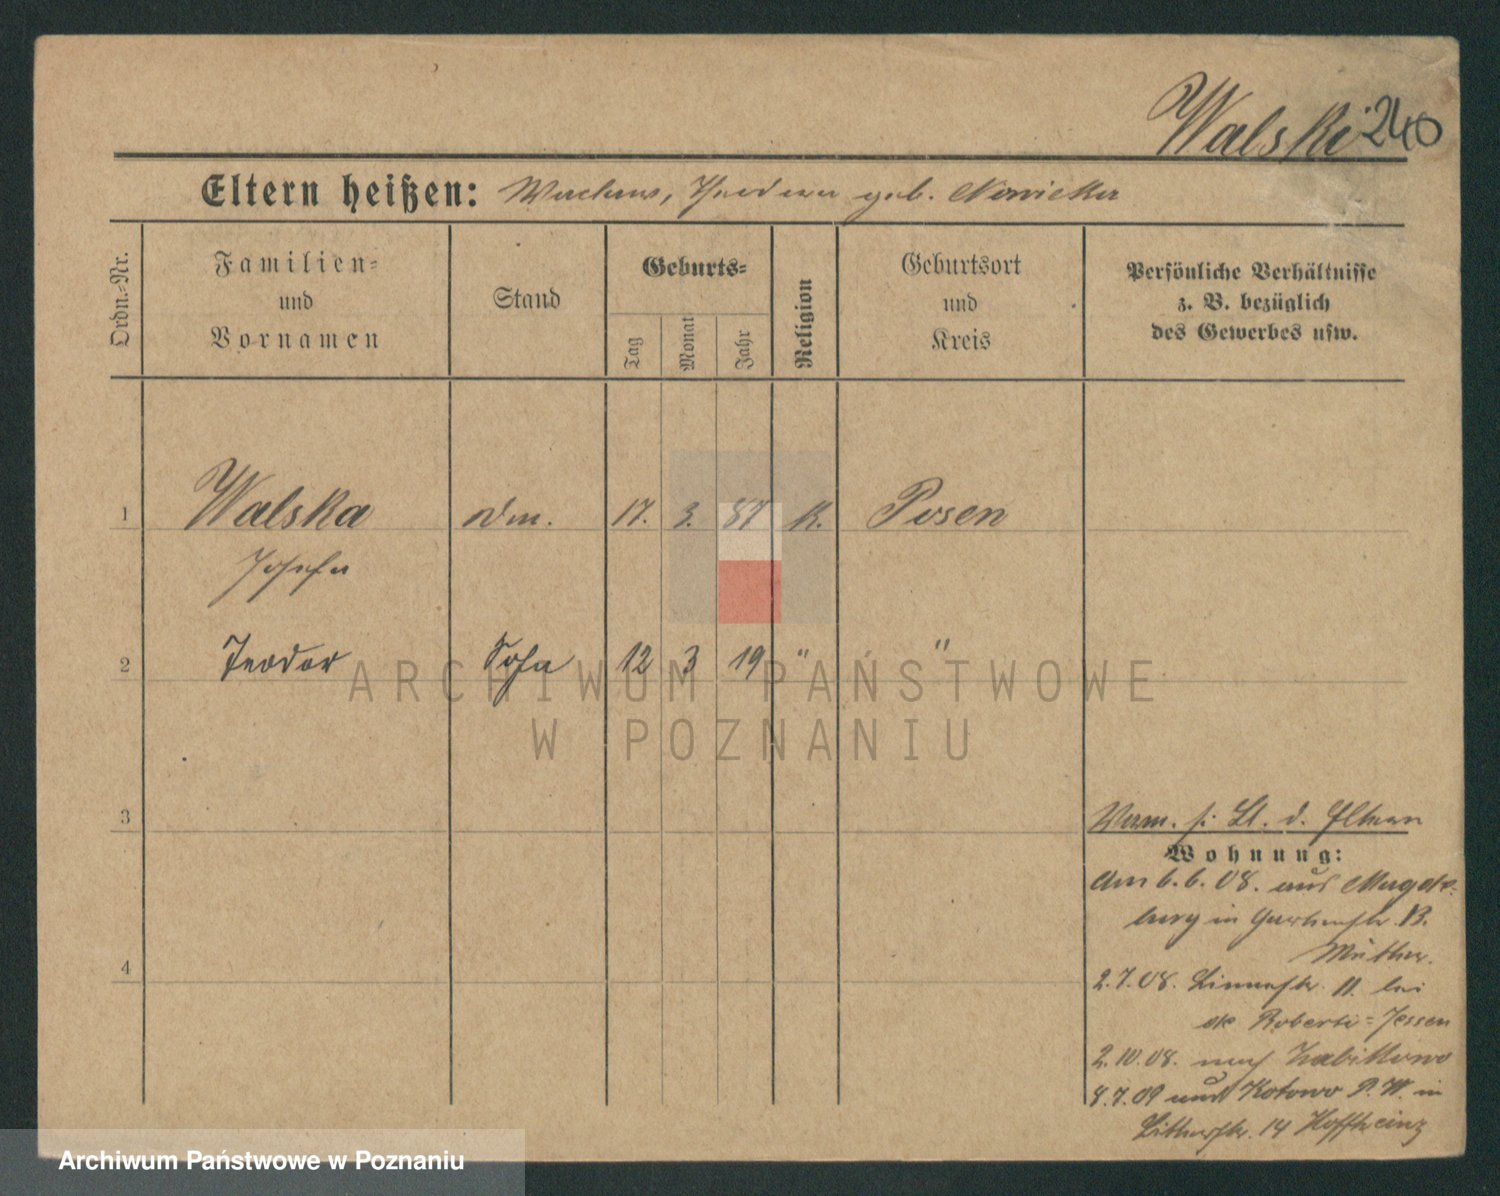 Walski 240
Eltern heißen: geb. Nowicka
Ordn.-Nr.
Familien-
und
Vornamen
Stand
Geburts-
Tag
Monat
Jahr
Religion
Geburtsort
und
Kreis
Persönliche Verhältnisse
z. B. bezüglich
des Gewerbes usw.
1 Walska 17. 3. 87 K. Posen
Josefa
2 Teodor Sohn 12 3 19 " "
3
4
Verm. s. Bl. d. Eltern
Wohnung:
Am 6.6.08. aus Magde-
burg in
Mutter.
2.7.08. 11. bei
de Roberti-Jessen
2.10.08. nach Zabikowo
8.7.09 Kotowo P. W. in
14 Hoffheinz
ARCHIWUM PAŃSTWOWE
W POZNANIU
Archiwum Państwowe w Poznaniu